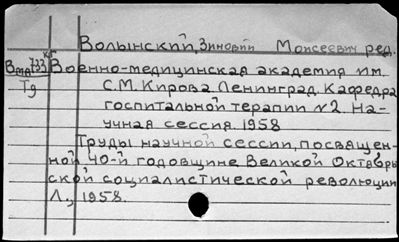 Волынский, Зиновий Моисеевич ред.
Вма 733 кг Военно-медицинская академия им.
Тд С.М. Кирова. Ленинград. Кафедра
госпитальной терапии №2. На-
учная сессия. 1958
Труды научной сессии, посвящен-
ной 40-й годовщине Великой Октябрь
ской социалистической революции
Л., 1958.